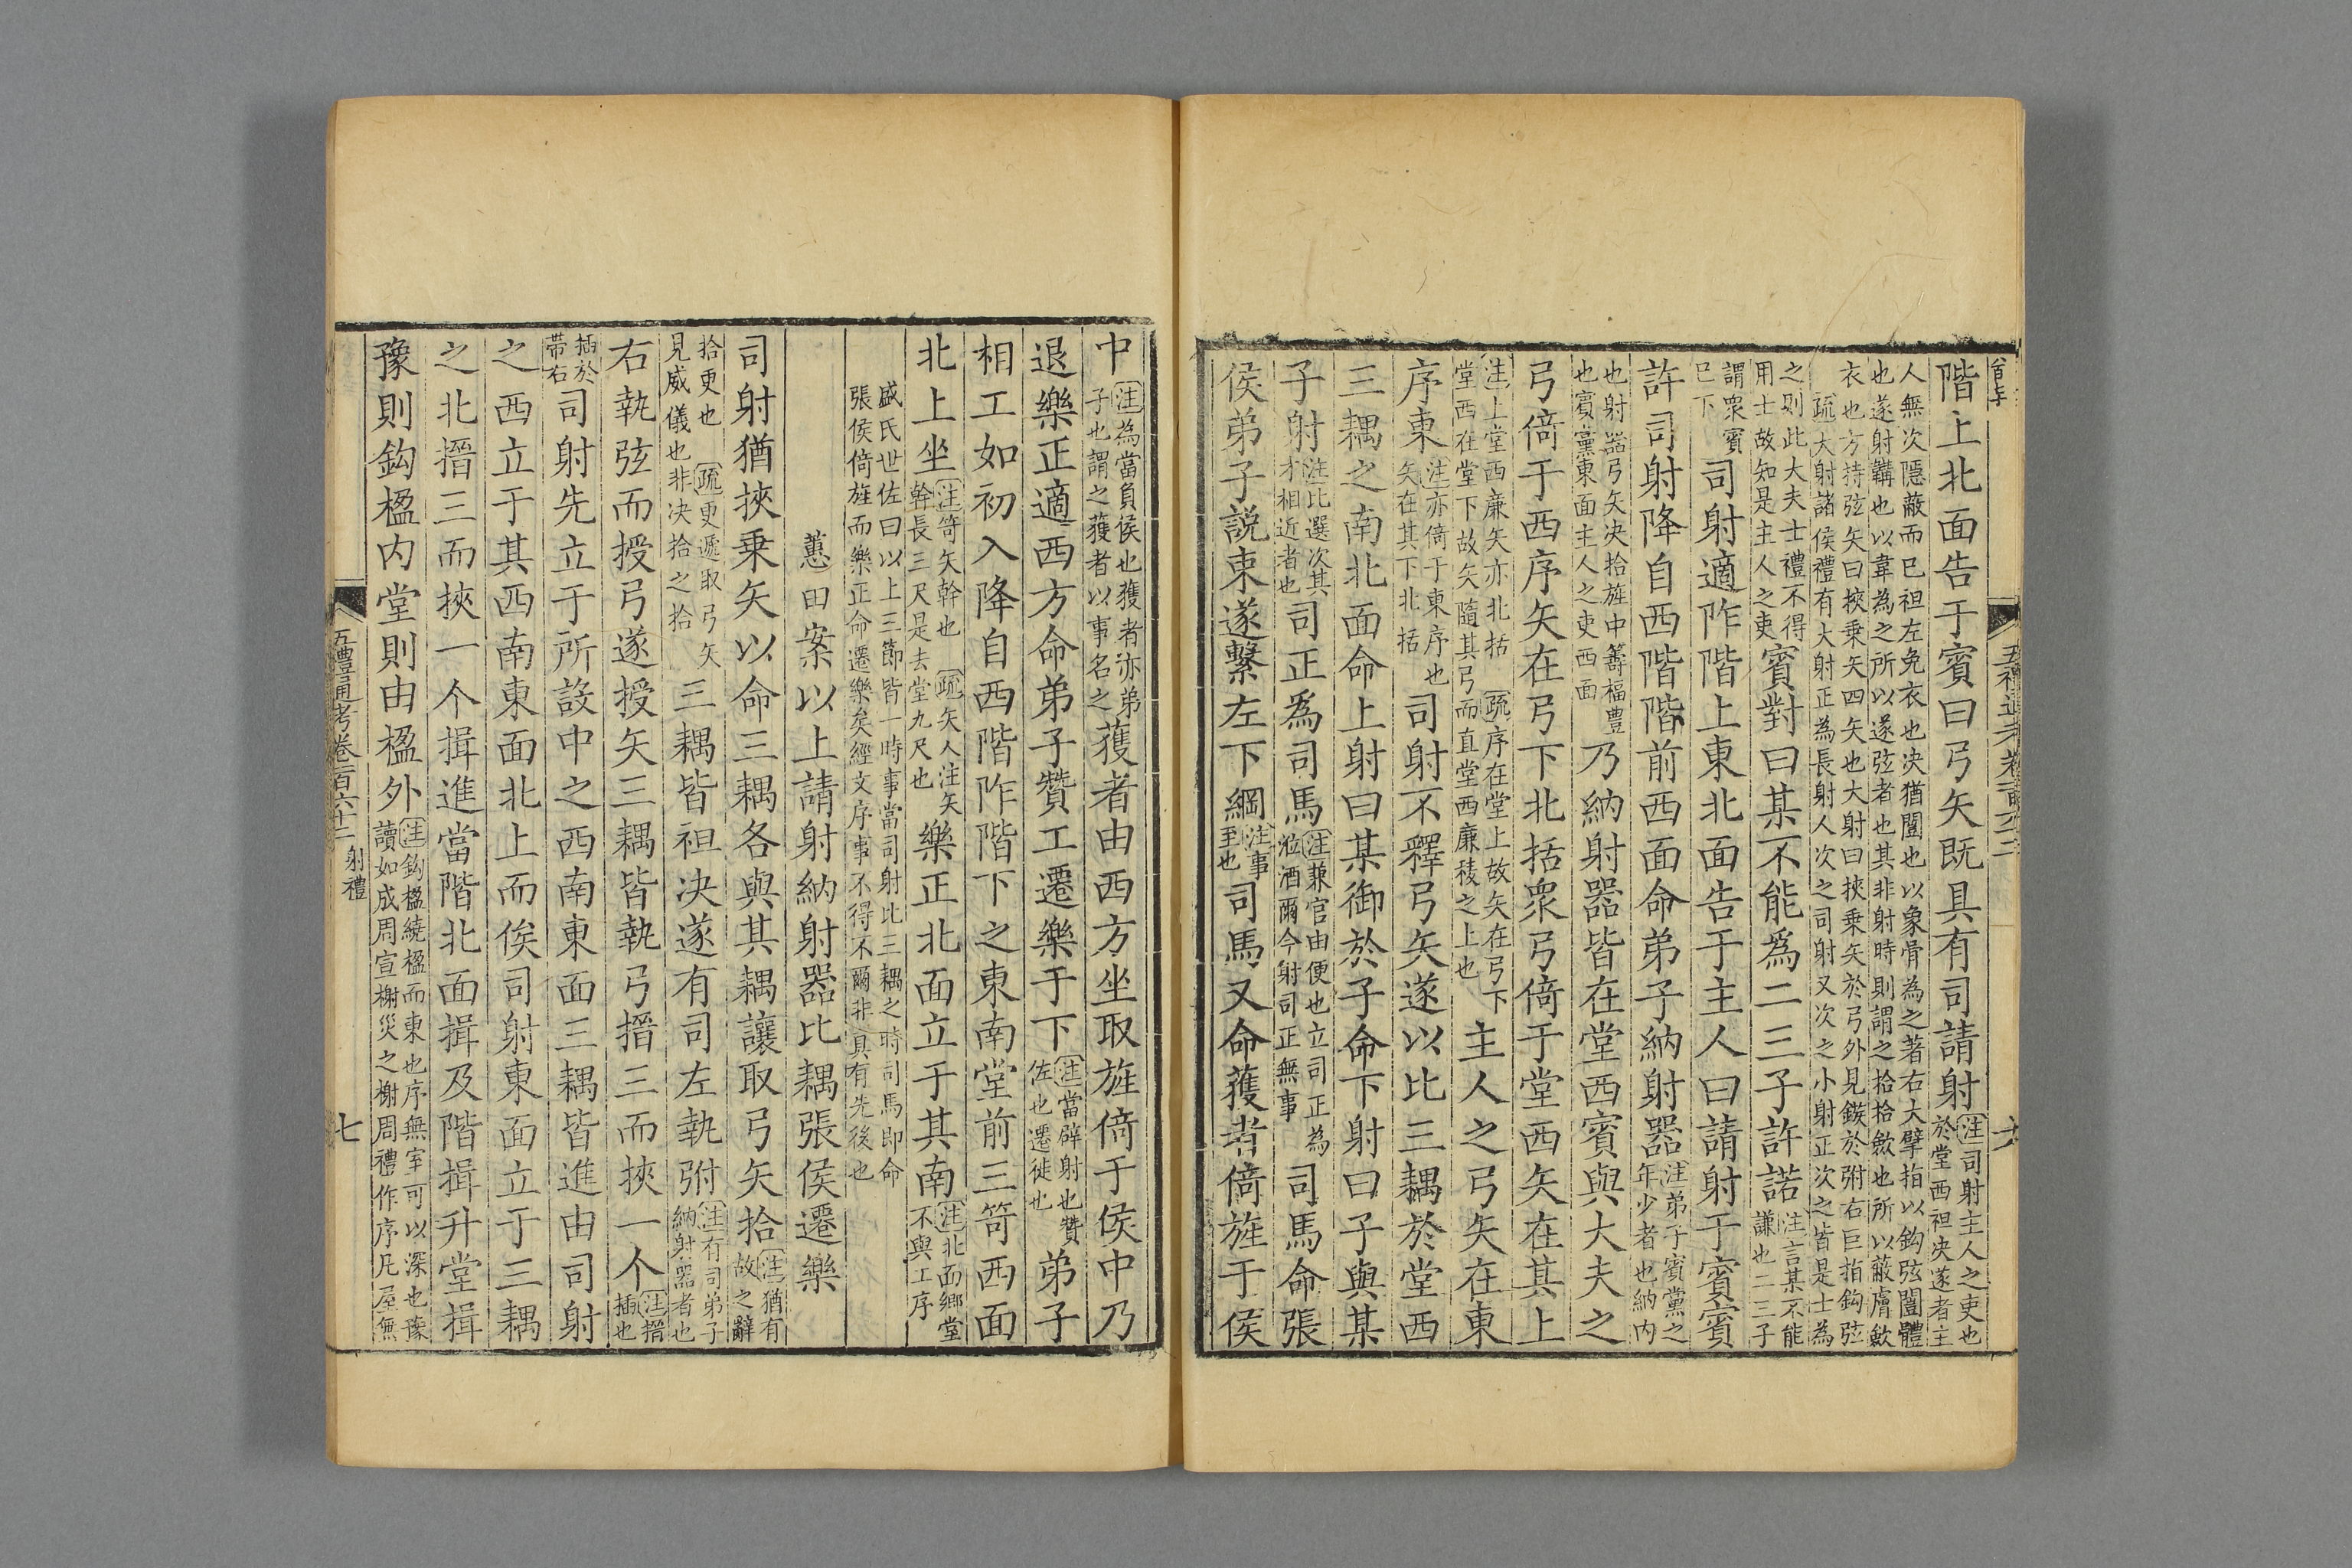 階上北面告于賓曰弓矢既具有司請射注司射主人之吏也於堂西袒决遂者主
人無次隱蔽而已袒左免衣也决猶闓也以象骨為之著右大擘指以鈎弦闓體
也遂射韝也以韋為之所以遂弦者也其非射時則謂之拾拾斂也所以蔽膚斂
衣也方持弦矢曰挾乗矢四矢也大射曰挾乗矢於弓外見鏃於弣右巨指鈎弦
疏大射諸侯禮有大射正為長射人次之司射又次之小射正次之皆是士為
之則此大夫士禮不得用士故知是主人之吏賓對曰某不能爲二三子許諾注言某不能謙也二三子
謂衆賓已下司射適阼階上東北面告于主人曰請射于賓賓
許司射降自西階階前西面命弟子納射器注弟子賓黨之年少者也納内
也射器弓矢决拾旌中籌楅豊也賓黨東面主人之吏西面乃納射器皆在堂西賓與大夫之
弓倚于西序矢在弓下北括衆弓倚于堂西矢在其上
注上堂西廉矢亦北括疏序在堂上故矢在弓下堂西在堂下故矢隨其弓而直堂西廉稜之上也主人之弓矢在東
序東注亦倚于東序也矢在其下北括司射不釋弓矢遂以比三耦於堂西
三耦之南北面命上射曰某御於子命下射曰子與某
子射注比選次其才相近者也司正爲司馬注兼官由便也立司正為涖酒爾今射司正無事司馬命張
侯弟子說束遂繫左下綱注事至也司馬又命獲者倚旌于侯
中注為當負侯也獲者亦弟子也謂之獲者以事名之獲者由西方坐取旌倚于侯中乃
退樂正適西方命弟子贊工遷樂于下注當辟射也贊佐也遷徙也弟子
相工如初入降自西階阼階下之東南堂前三笴西面
北上坐注笴矢幹也幹長三尺是去堂九尺也疏矢人注矢樂正北面立于其南注北面鄉堂不與工序
盛氏世佐曰以上三節皆一時事當司射比三耦之時司馬即命
張侯倚旌而樂正命遷樂矣經文序事不得不爾非眞有先後也
蕙田案以上請射納射器比耦張侯遷樂
司射猶挾乗矢以命三耦各與其耦讓取弓矢拾注猶有故之辭
拾更也疏更遞取弓矢見威儀也非决拾之拾三耦皆袒决遂有司左執弣注有司弟子納射器者也
右執弦而授弓遂授矢三耦皆執弓搢三而挾一个注搢插也
插於帶右司射先立于所設中之西南東面三耦皆進由司射
之西立于其西南東面北上而俟司射東面立于三耦
之北搢三而挾一个揖進當階北面揖及階揖升堂揖
豫則鈎楹内堂則由楹外注鈎楹繞楹而東也序無室可以深也豫讀如成周宣榭災之榭周禮作序凡屋無
五禮通考卷一百六十二 射禮 七